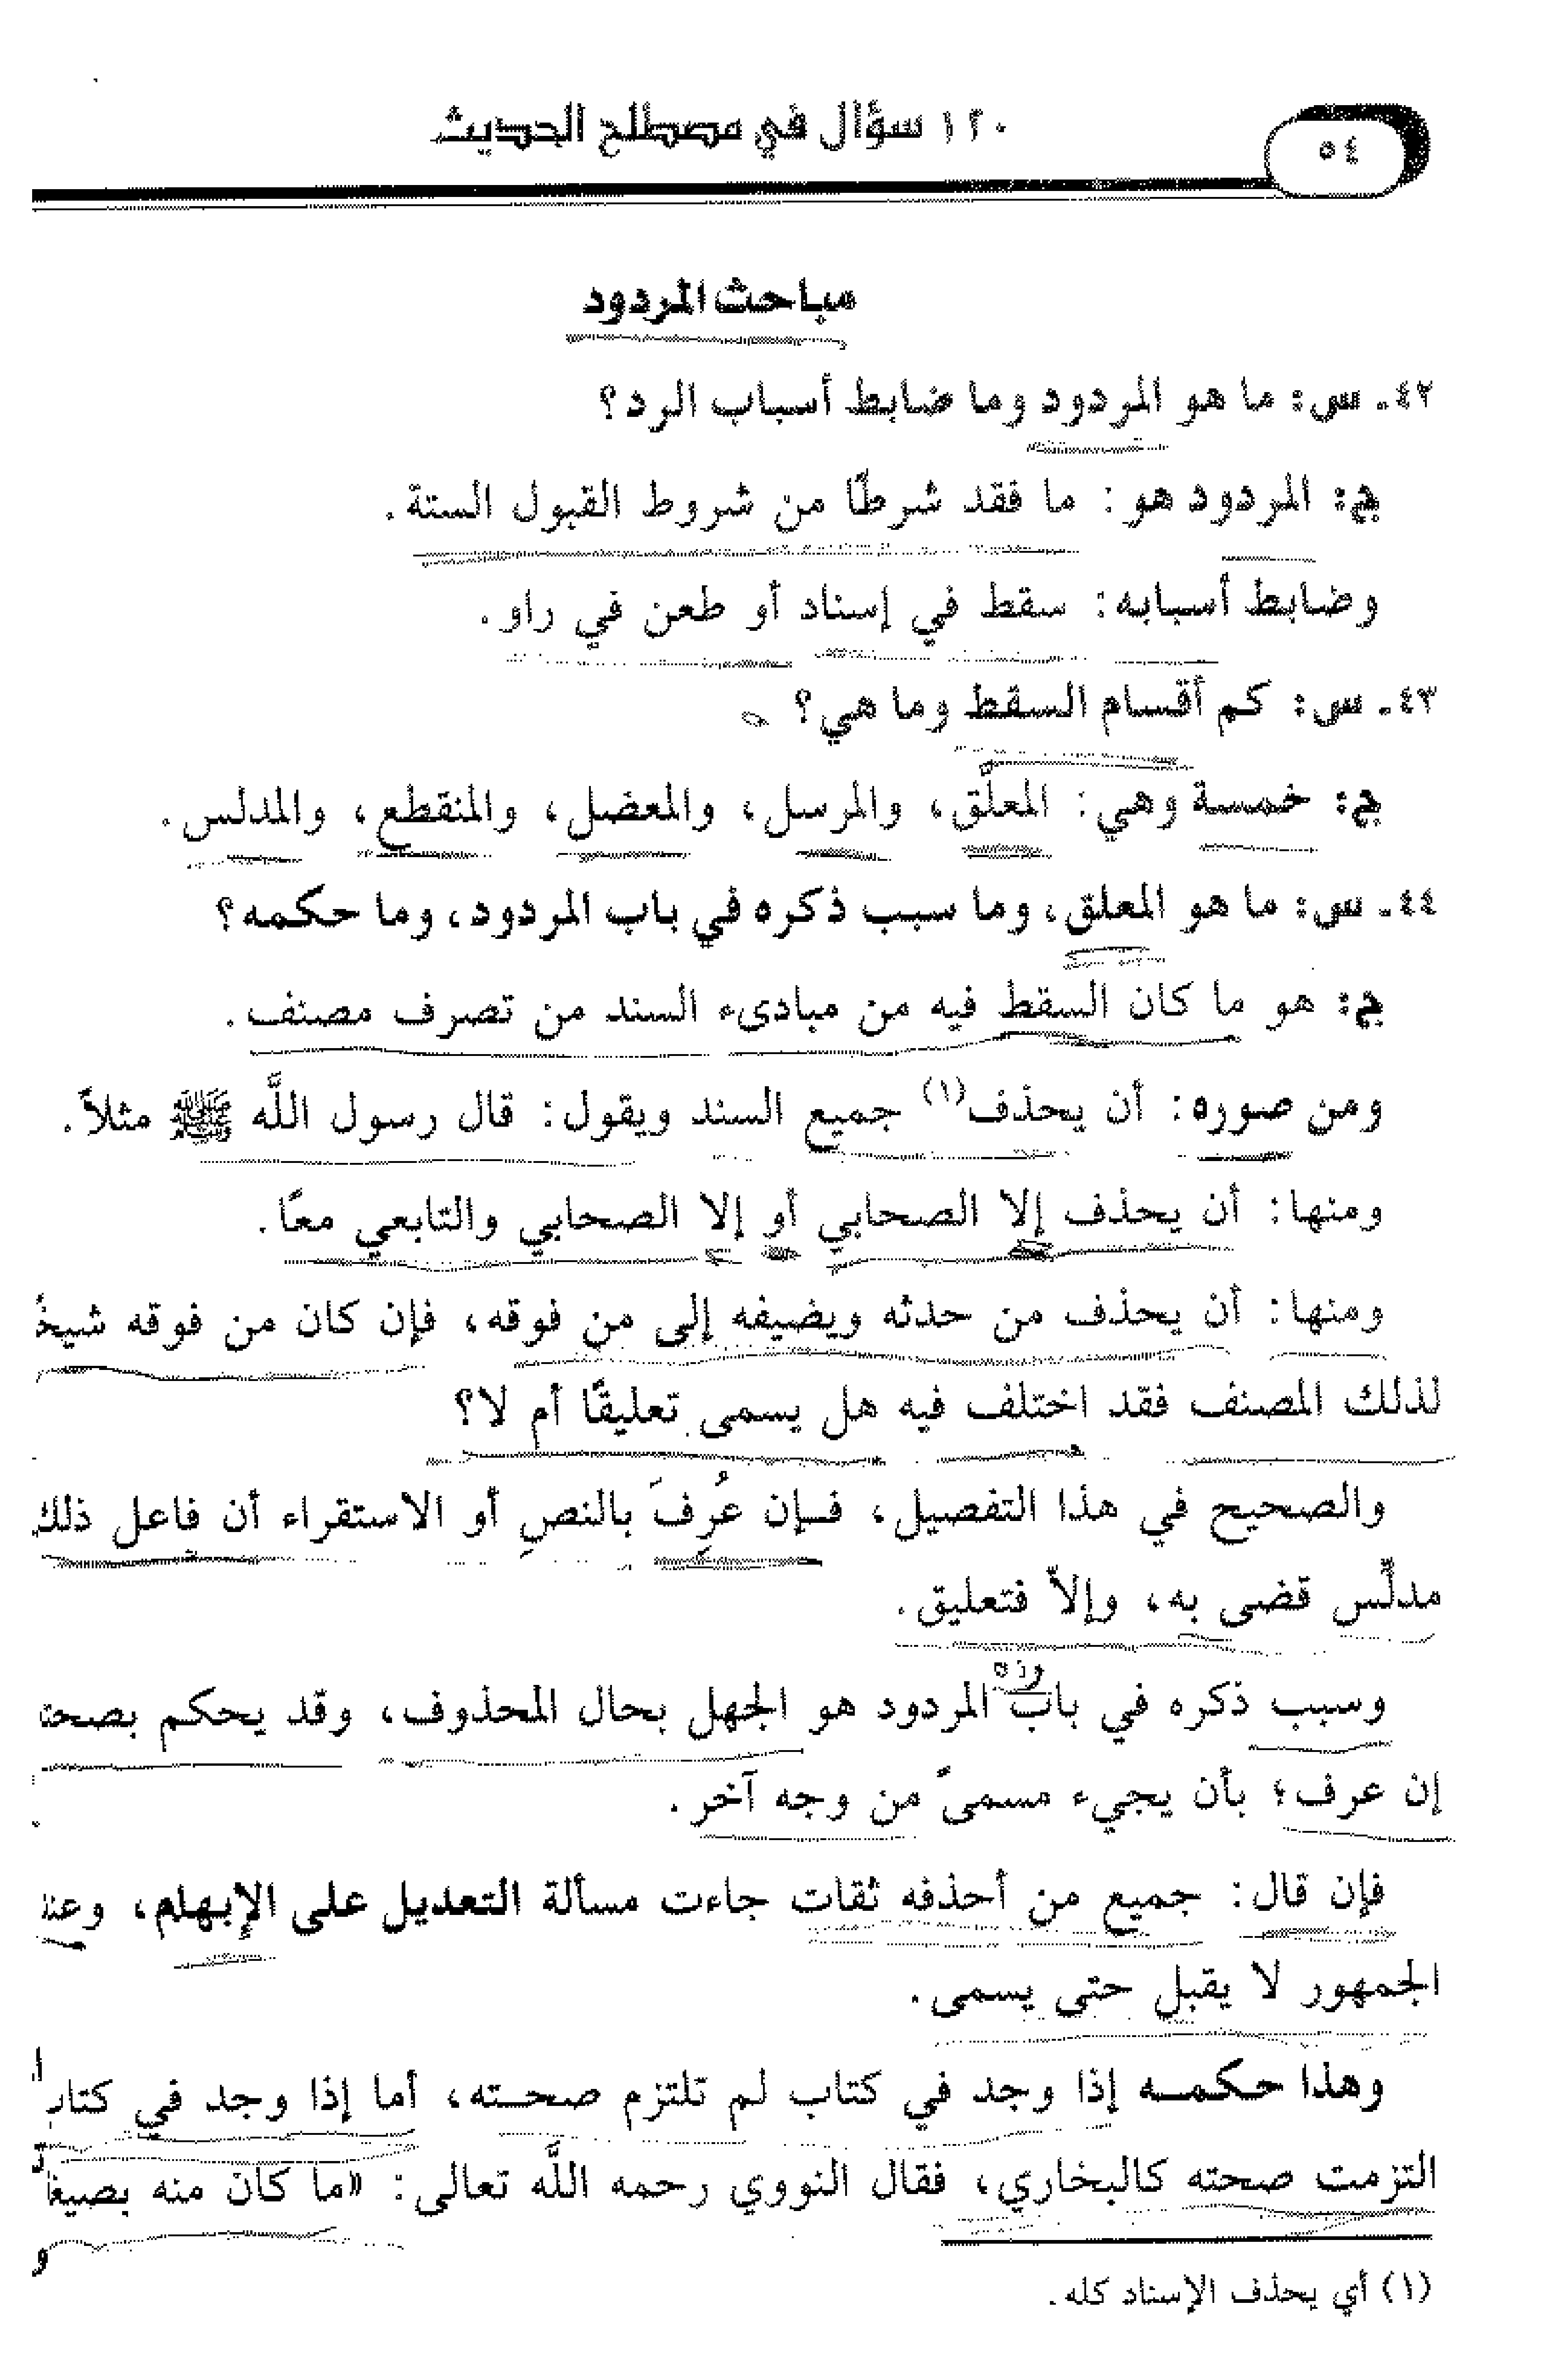 ٥٤
١٢٠ سؤال في مصطلح الحديث
مباحث المردود
٤٢ـ س: ما هو المردود وما ضابط أسباب الرد؟
ج: المردود هو: ما فقد شرطًا من شروط القبول الستة.
وضابط أسبابه: سقط في إسناد أو طعن في راو.
٤٣ـ س: كم أقسام السقط وما هي؟
ج: خمسة وهي: المعلَّق، والمرسل، والمعضل، والمنقطع، والمدلس.
٤٤ـ س: ما هو المعلق، وما سبب ذكره في باب المردود، وما حكمه؟
ج: هو ما كان السقط فيه من مبادىء السند من تصرف مصنف.
ومن صوره: أن يحذف(١) جميع السند ويقول: قال رسول اللَّه ﷺ مثلاً.
ومنها: أن يحذف إلا الصحابي أو إلا الصحابي والتابعي معًا.
ومنها: أن يحذف من حدثه ويضيفه إلى من فوقه، فإن كان من فوقه شيخً
لذلك المصنف فقد اختلف فيه هل يسمى تعليقًا أم لا؟
والصحيح في هذا التفصيل، فإن عُرِفَ بالنصِ أو الاستقراء أن فاعل ذلك
مدلِّس قضى به، وإلاّ فتعليق.
وسبب ذكره في باب المردود هو الجهل بحال المحذوف، وقد يحكم بصحت
إن عرف؛ بأن يجيء مسمىً من وجه آخر.
فإن قال: جميع من أحذفه ثقات جاءت مسألة التعديل على الإبهام، وعند
الجمهور لا يقبل حتى يسمى.
وهذا حكمه إذا وجد في كتاب لم تلتزم صحته، أما إذا وجد في كتاب
التزمت صحته كالبخاري، فقال النووي رحمه اللَّه تعالى: «ما كان منه بصيغ
(١) أي يحذف الإسناد كله.